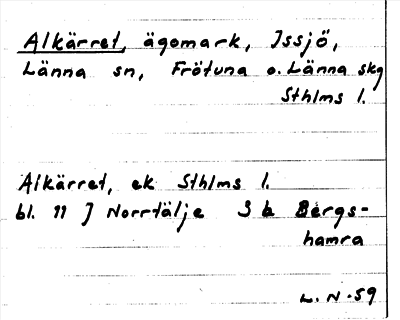 Alkärret, ägomark, Issjö,
Länna sn, Frötuna o. Länna skg
Sthlms l.
Alkärret, ek Sthlms l.
bl. 11 J Norrtälje S b Bergs-
hamra
L. N -59